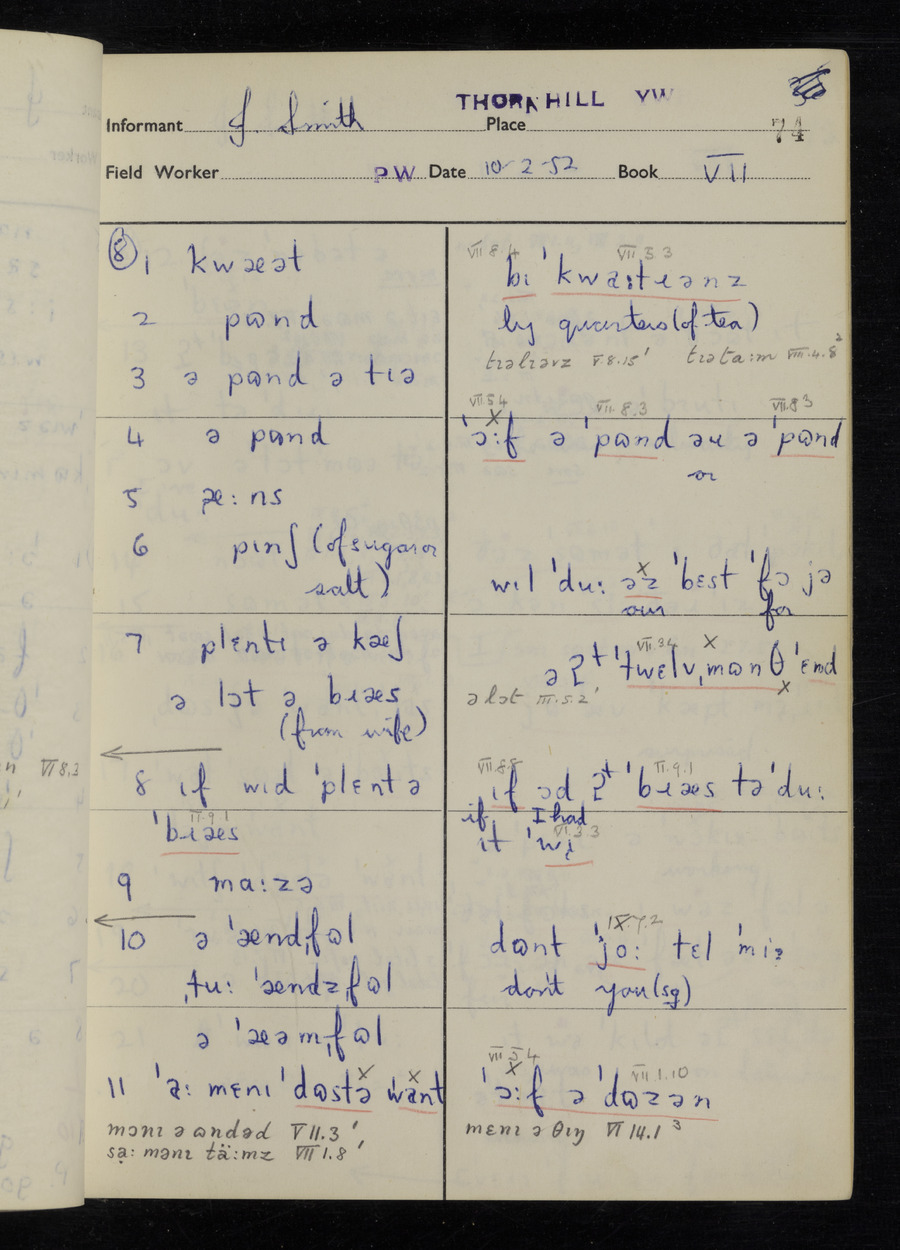 THORNHILL YW
Informant J. Smith Place
74
Field Worker PW Date 10-2-52 Book VII
⑧ 1 kwæət
2 pɷnd
3 ə pɷnd ə tɪə
4 ə pɷnd
5 æ:ns
6 pɪnʃ (of sugar or
salt)
7 plɛntɪ ə kæʃ
ə lɔt ə bɹæs
(from wife)
VI 8.3
8 ɪf wɪd 'plɛntə
II.9.1
'bɹæs
9 ma:zə
10 ə 'ændˌfɷl
ˌtu: 'ændzˌfɷl
ə 'æəmˌfɷl
11 'a: mɛnɪ 'dɷstə 'want
mɔnɪ ə ɷndəd VII.3'
sa: mənɪ tä:mz VII 1.8'
VII 8.4 VII 5 3
bɪ 'kwa:tɹənz
by quarters (of tea)
tɪəlɪəvz V 8.15' tɪəta:m VIII.4.8
VII 5 4 VII.8.3 VII.8 3
'ɔ:f ə 'pɷnd əɹ ə 'pɷnd
or
wɪl 'du: əz 'bɛst 'fɔ jə
our for
VII.3 4
ə ʔt 'twɛlvˌmɷnθ 'ɛnd
ə lɔt III.5.2'
VII.8.8 II.9.1
ɪf əd ʔt 'bɹæs tə 'du:
if I had
VI.3 3
ɪt 'wɪ
IX.7.2
dɷnt 'jo: tɛl 'mi:
don't you (sg)
VII 5 4 VII.1.10
'ɔ:f ə 'dɷzən
mɛnɪ ə θɪŋ VI 14.1 3